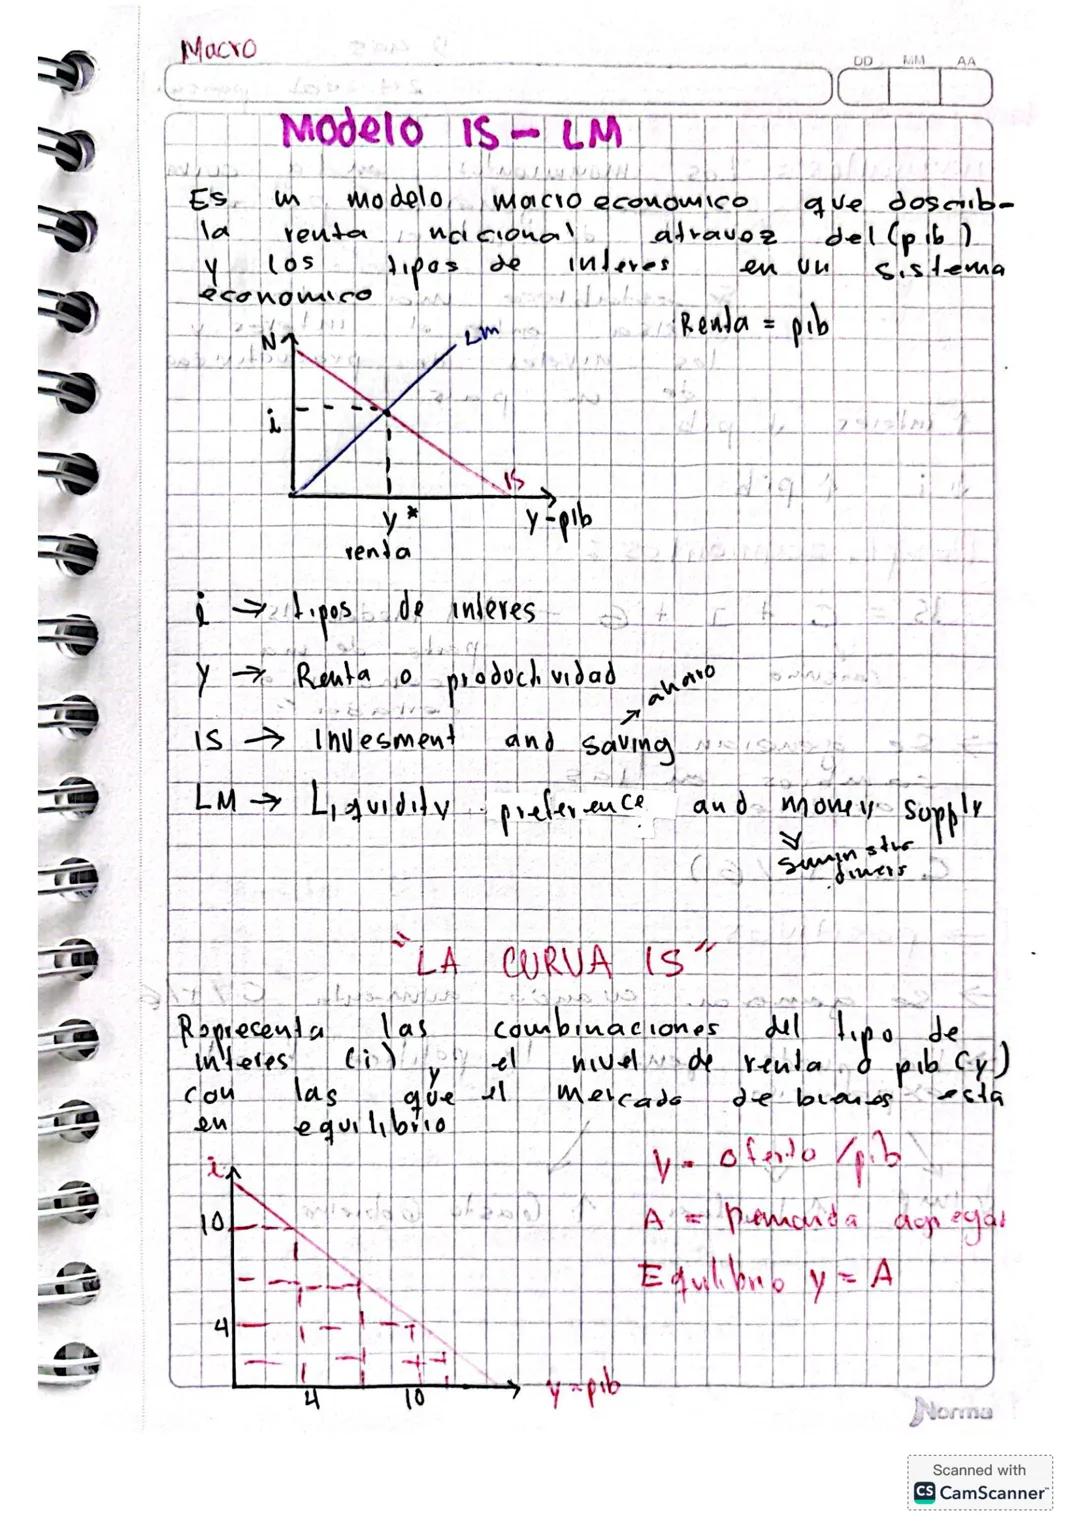 Macro
DD MM AA
Modelo IS - LM
Es un modelo macro economico que describ-
la renta nacional atravez del (pib)
y los tipos de interes en un sistema
economico
Renta = pib
N
LM
i
IS
y*
y-pib
renta
i → tipos de interes
y → Renta o productividad
ahorro
IS → Invesment and saving
LM → Liquidity preference and money supply
Suministro
dinero
"LA CURVA IS"
Representa las combinaciones del tipo de
interes (i) y el nivel de renta o pib (y)
con las que el mercado de bienes esta
en equilibrio
y = oferta / pib
i
10
A = Demanda agregad
Equilibrio y = A
4
4 10
y = pib
Norma
Scanned with
CS CamScanner